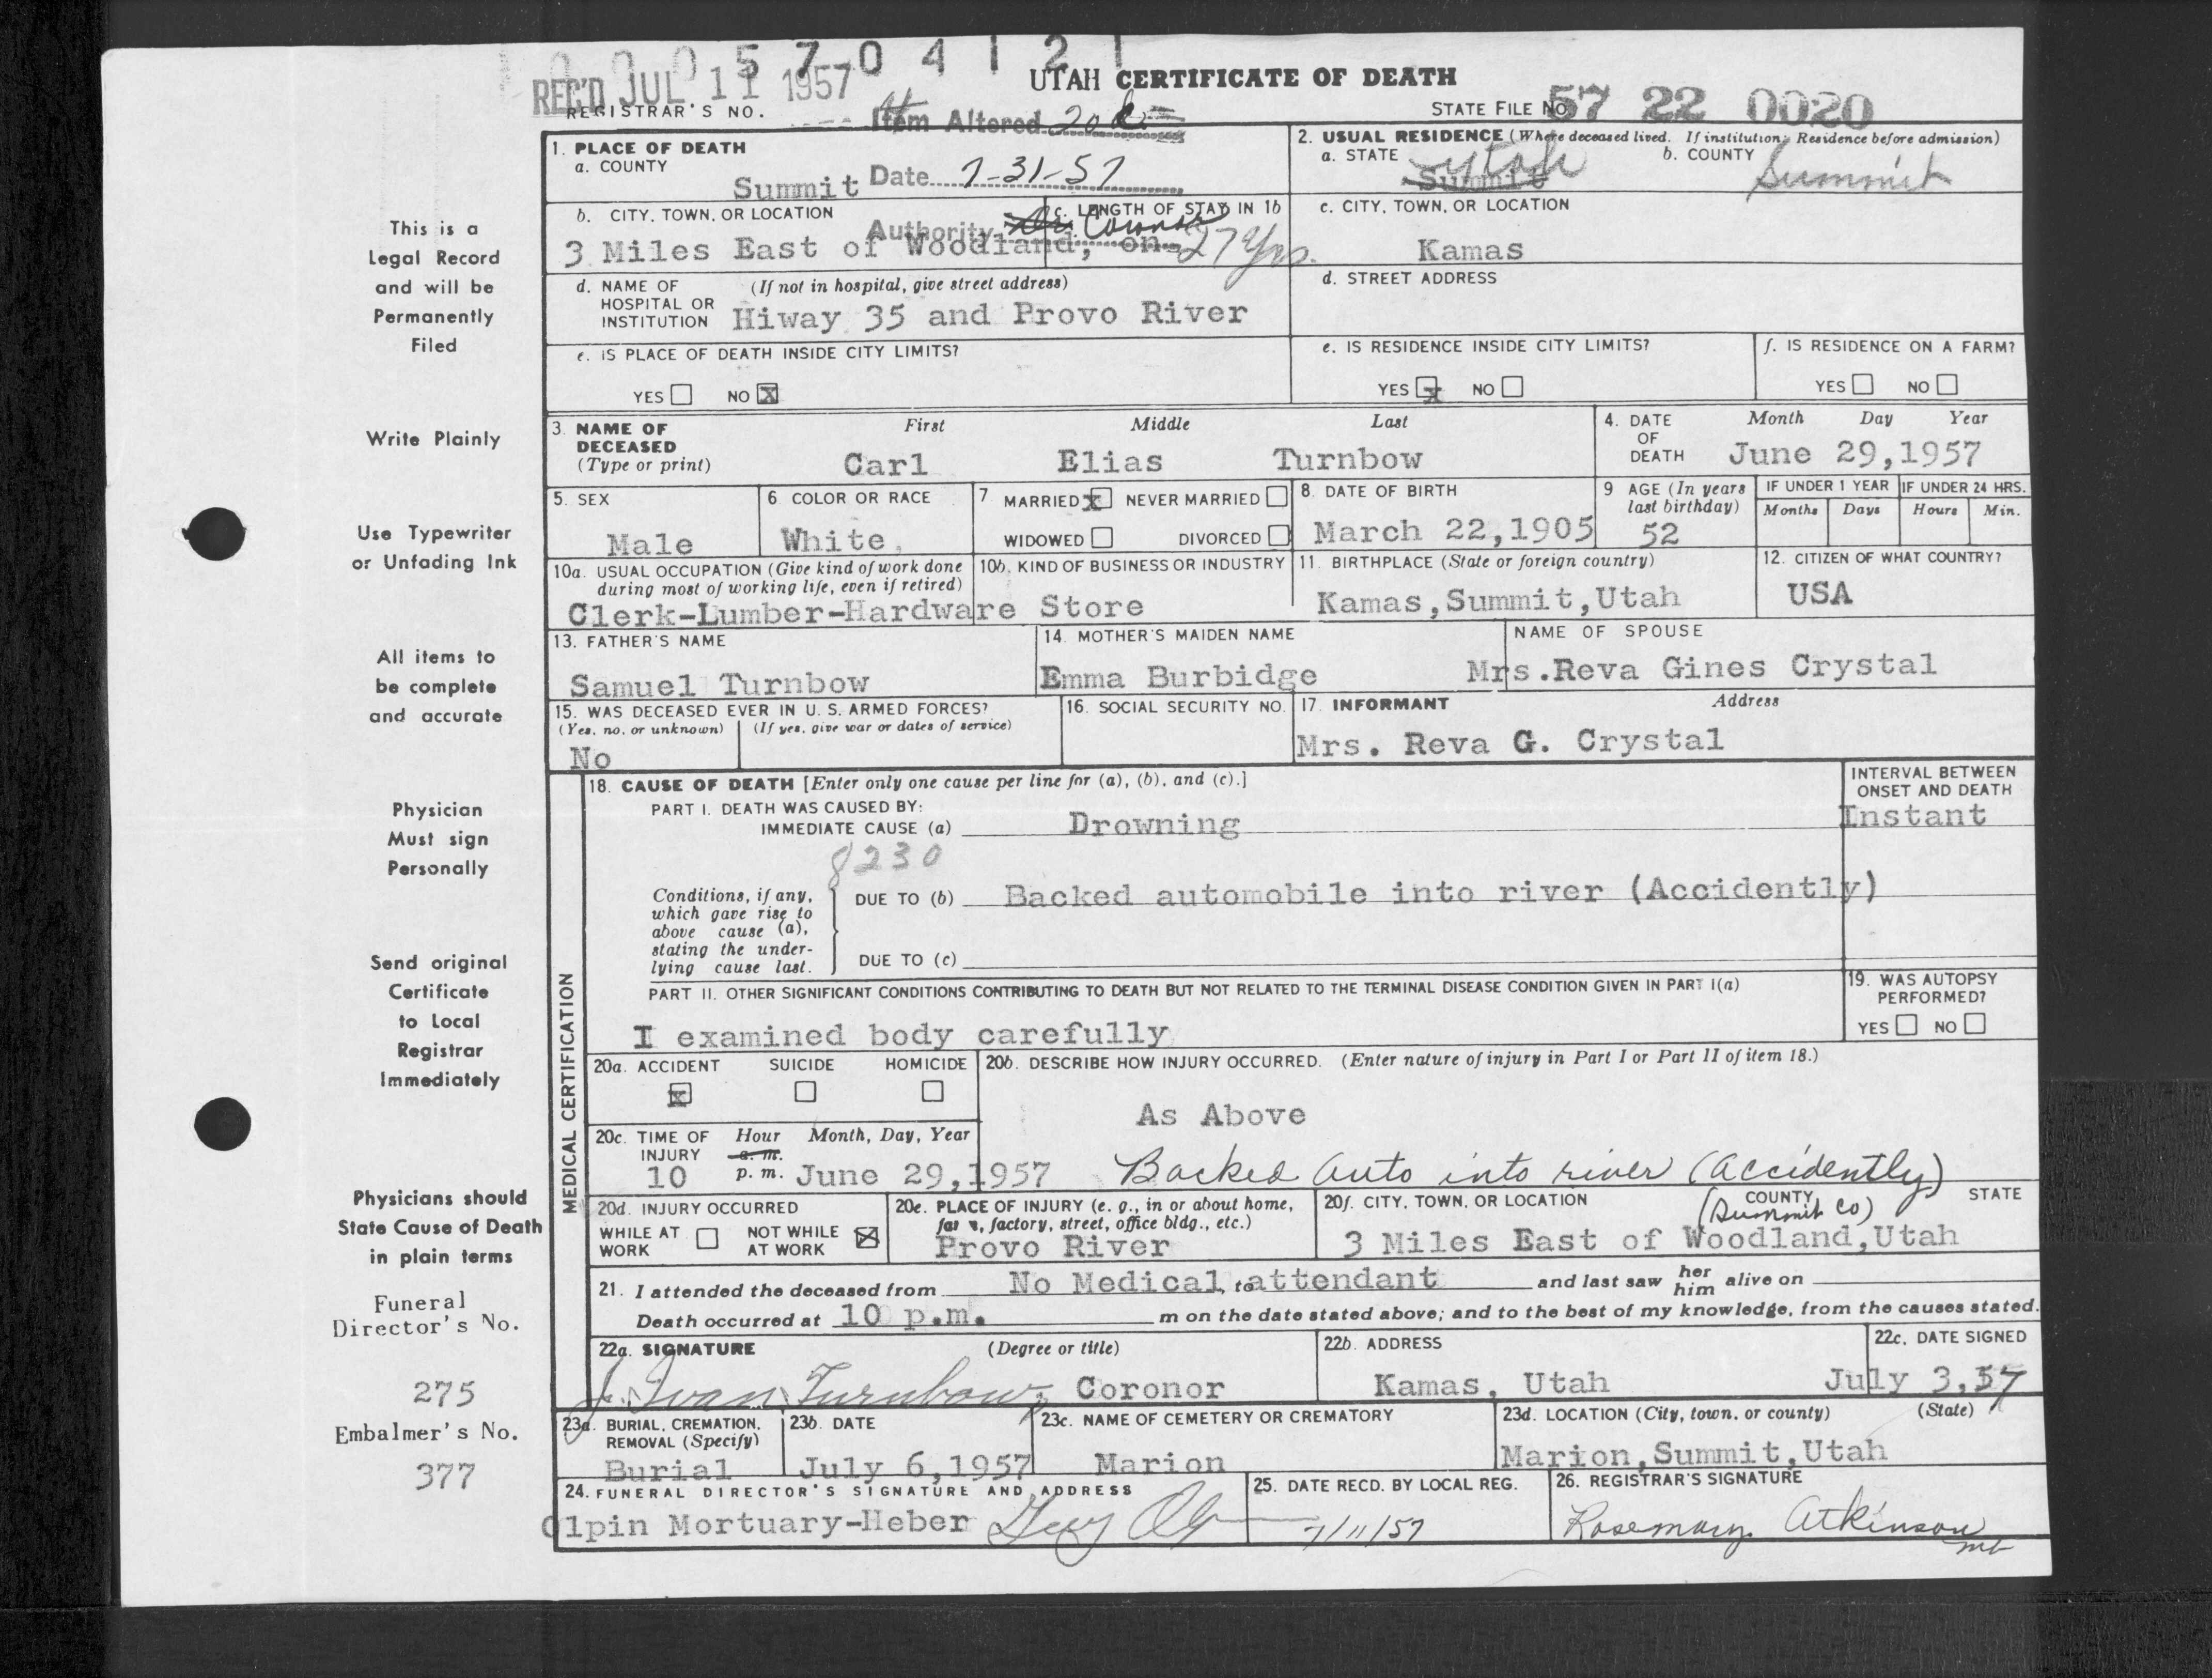 0 0 0 5 7 0 4 1 2 1
REC'D JUL 11 1957
UTAH CERTIFICATE OF DEATH
REGISTRAR'S NO.
Item Altered 20d
STATE FILE NO. 57 22 0020
1. PLACE OF DEATH
a. COUNTY
Summit
Date 7-31-57
2. USUAL RESIDENCE (Where deceased lived. If institution: Residence before admission)
a. STATE
Summit Utah
b. COUNTY
Summit
b. CITY, TOWN, OR LOCATION
3 Miles East of Woodland, on
Authority Coronor
c. LENGTH OF STAY IN 1b
27 Yrs.
c. CITY, TOWN, OR LOCATION
Kamas
d. NAME OF HOSPITAL OR INSTITUTION
(If not in hospital, give street address)
Hiway 35 and Provo River
d. STREET ADDRESS
e. IS PLACE OF DEATH INSIDE CITY LIMITS?
YES NO X
e. IS RESIDENCE INSIDE CITY LIMITS?
YES X NO
f. IS RESIDENCE ON A FARM?
YES NO
3. NAME OF DECEASED
(Type or print)
First Middle Last
Carl Elias Turnbow
4. DATE OF DEATH
Month Day Year
June 29,1957
5. SEX
Male
6. COLOR OR RACE
White
7. MARRIED X NEVER MARRIED
WIDOWED DIVORCED
8. DATE OF BIRTH
March 22,1905
9 AGE (In years last birthday)
52
IF UNDER 1 YEAR
Months Days
IF UNDER 24 HRS.
Hours Min.
10a. USUAL OCCUPATION (Give kind of work done during most of working life, even if retired)
10b. KIND OF BUSINESS OR INDUSTRY
Clerk-Lumber-Hardware Store
11. BIRTHPLACE (State or foreign country)
Kamas,Summit,Utah
12. CITIZEN OF WHAT COUNTRY?
USA
13. FATHER'S NAME
Samuel Turnbow
14. MOTHER'S MAIDEN NAME
Emma Burbidge
NAME OF SPOUSE
Mrs.Reva Gines Crystal
15. WAS DECEASED EVER IN U. S. ARMED FORCES?
(Yes, no, or unknown) (If yes, give war or dates of service)
No
16. SOCIAL SECURITY NO.
17. INFORMANT Address
Mrs. Reva G. Crystal
MEDICAL CERTIFICATION
18. CAUSE OF DEATH [Enter only one cause per line for (a), (b), and (c).]
PART I. DEATH WAS CAUSED BY:
IMMEDIATE CAUSE (a) Drowning
INTERVAL BETWEEN ONSET AND DEATH
Instant
8230
Conditions, if any, which gave rise to above cause (a), stating the underlying cause last.
DUE TO (b) Backed automobile into river (Accidently)
DUE TO (c)
PART II. OTHER SIGNIFICANT CONDITIONS CONTRIBUTING TO DEATH BUT NOT RELATED TO THE TERMINAL DISEASE CONDITION GIVEN IN PART I(a)
I examined body carefully
19. WAS AUTOPSY PERFORMED?
YES NO
20a. ACCIDENT SUICIDE HOMICIDE
X
20b. DESCRIBE HOW INJURY OCCURRED. (Enter nature of injury in Part I or Part II of item 18.)
As Above
Backed auto into river (Accidently)
20c. TIME OF INJURY
Hour Month, Day, Year
a. m.
10 p. m. June 29,1957
20d. INJURY OCCURRED
WHILE AT WORK NOT WHILE AT WORK X
20e. PLACE OF INJURY (e. g., in or about home, farm, factory, street, office bldg., etc.)
Provo River
20f. CITY, TOWN, OR LOCATION COUNTY STATE
(Summit Co)
3 Miles East of Woodland,Utah
21. I attended the deceased from No Medical, to attendant and last saw her him alive on
Death occurred at 10 p.m. m on the date stated above; and to the best of my knowledge, from the causes stated.
22a. SIGNATURE (Degree or title)
J. Ivan Turnbow, Coronor
22b. ADDRESS
Kamas, Utah
22c. DATE SIGNED
July 3,57
23a. BURIAL, CREMATION, REMOVAL (Specify)
Burial
23b. DATE
July 6,1957
23c. NAME OF CEMETERY OR CREMATORY
Marion
23d. LOCATION (City, town, or county) (State)
Marion,Summit,Utah
24. FUNERAL DIRECTOR'S SIGNATURE AND ADDRESS
Olpin Mortuary-Heber
25. DATE RECD. BY LOCAL REG.
7/11/57
26. REGISTRAR'S SIGNATURE
Rosemary Atkinson
mb
This is a
Legal Record
and will be
Permanently
Filed
Write Plainly
Use Typewriter
or Unfading Ink
All items to
be complete
and accurate
Physician
Must sign
Personally
Send original
Certificate
to Local
Registrar
Immediately
Physicians should
State Cause of Death
in plain terms
Funeral
Director's No.
275
Embalmer's No.
377